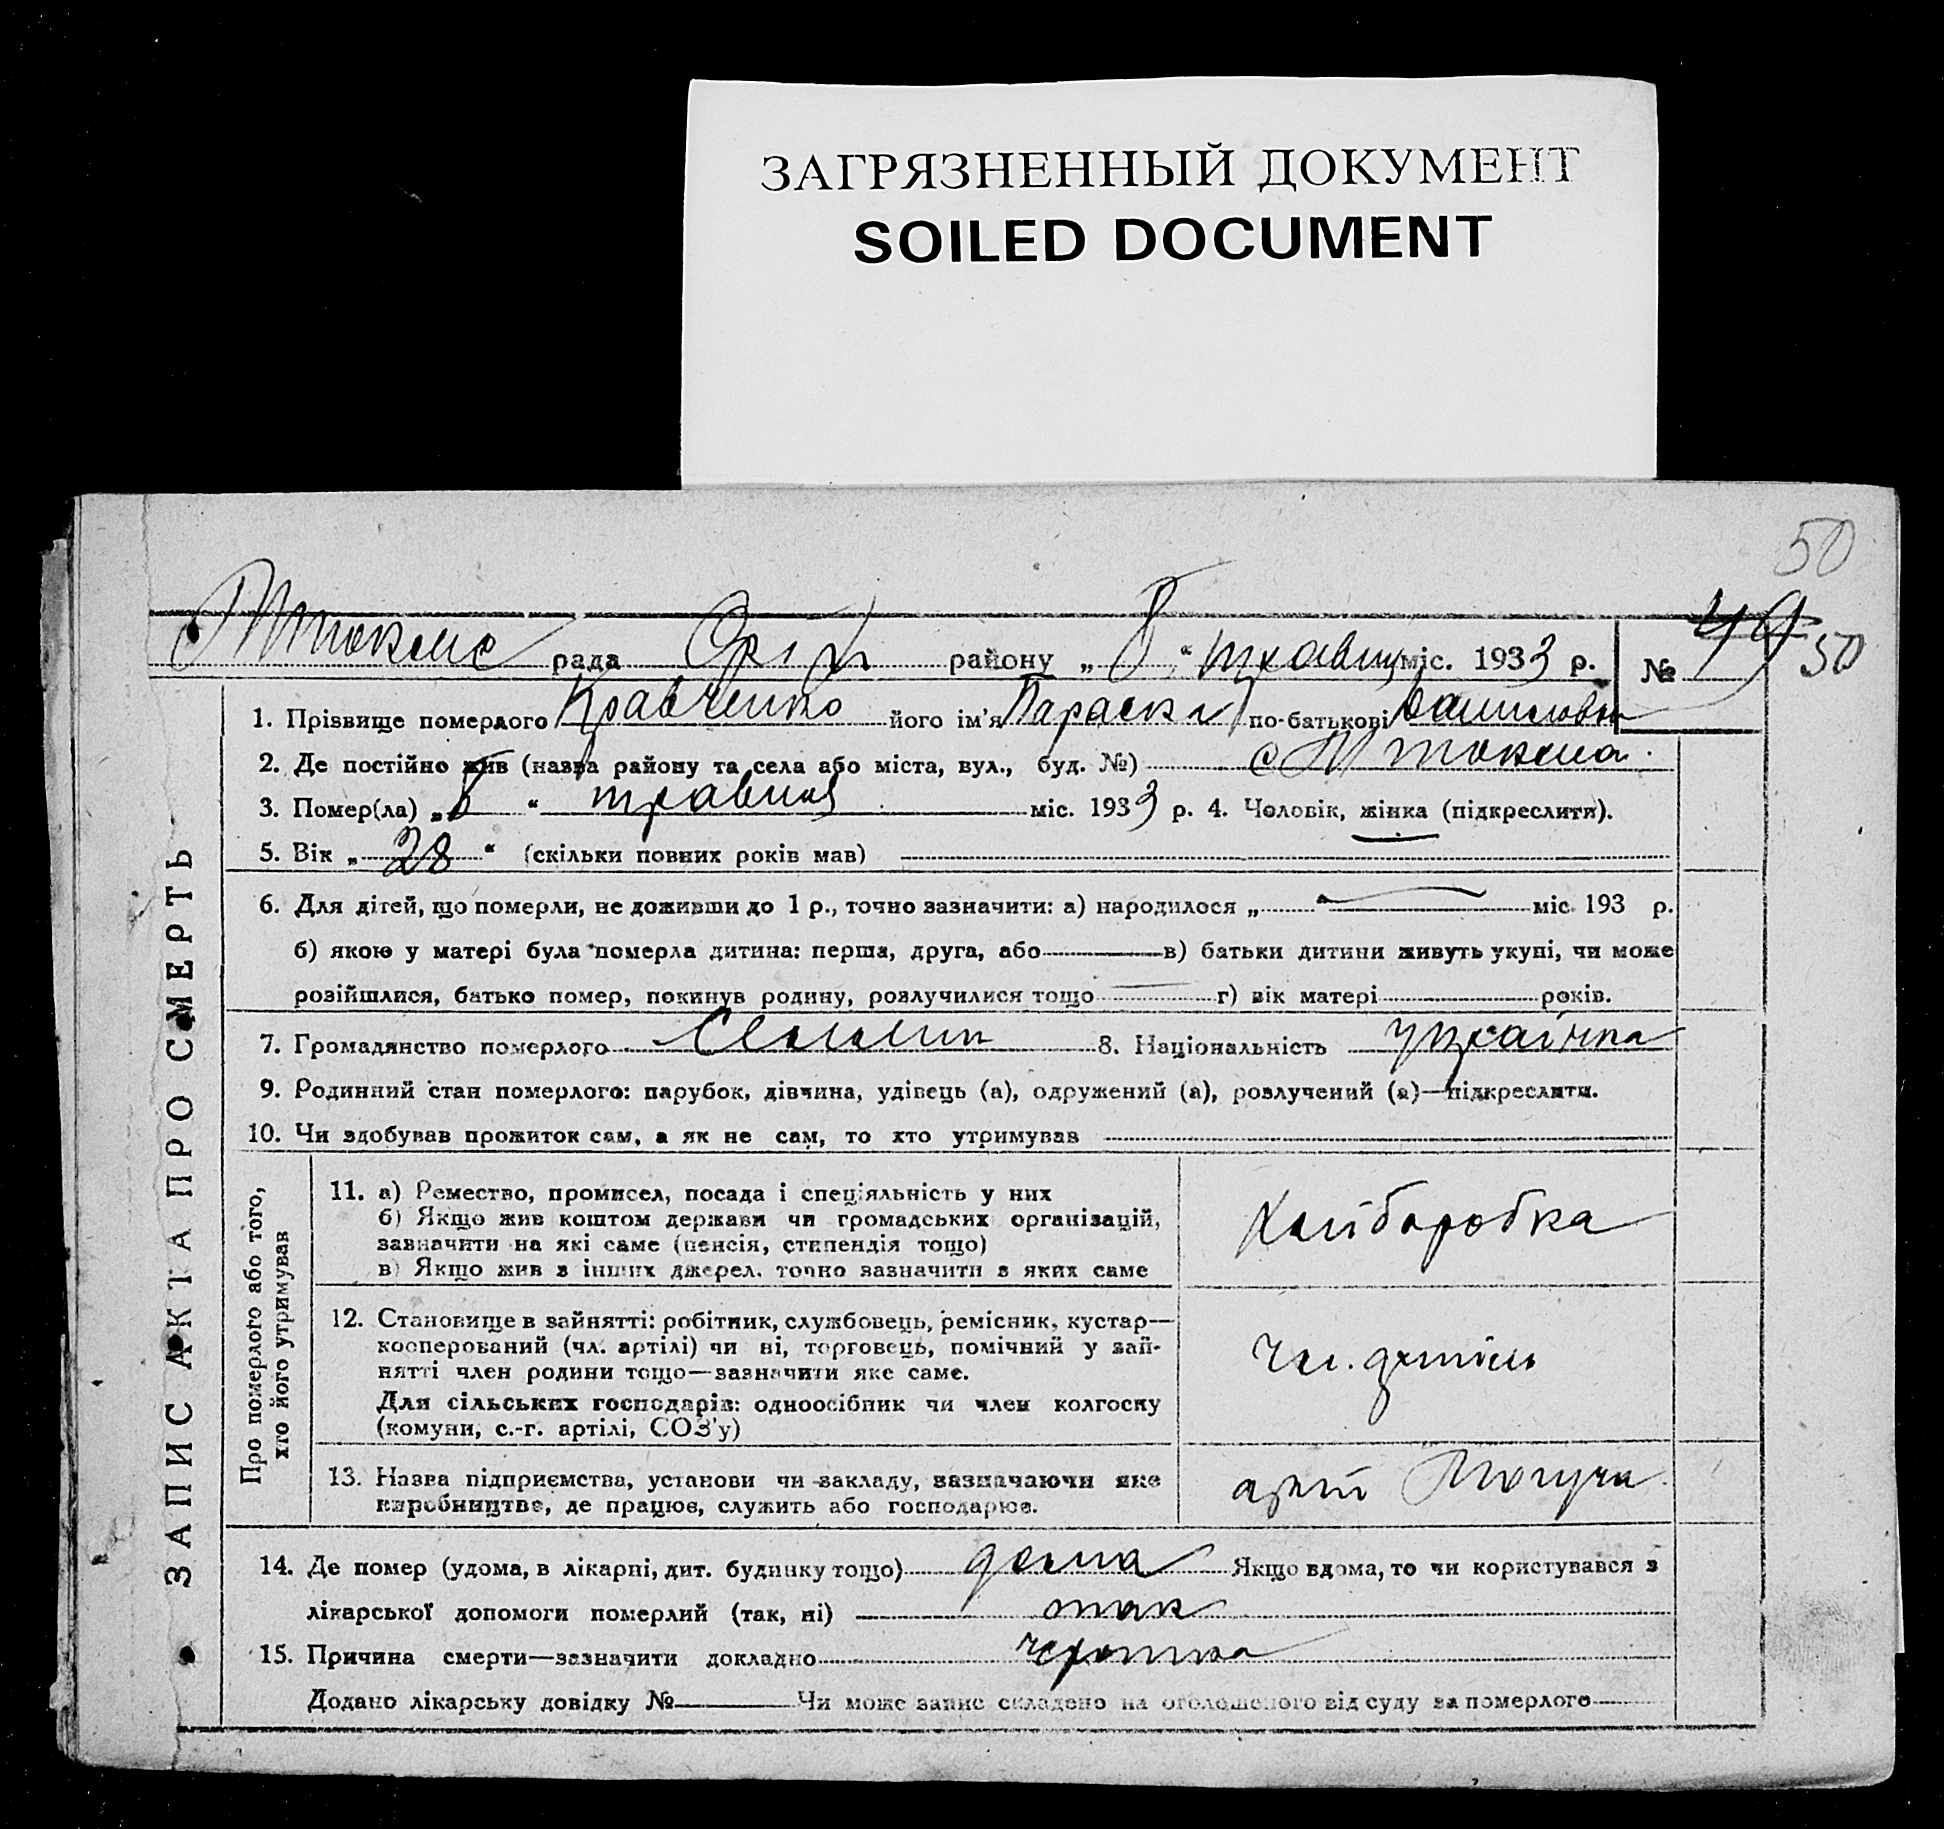 ЗАГРЯЗНЕННЫЙ ДОКУМЕНТ
SOILED DOCUMENT
50
рада району „ “ травня міс. 1933 р. № 49 50
1. Прізвище померлого Кравченко його ім'я Параска по-батькові Данилівн
2. Де постійно жив (назва району та села або міста, вул., буд. №) с
3. Помер(ла) „ “ травня міс. 1933 р. 4. Чоловік, жінка (підкреслити).
5. Вік „ 28 “ (скільки повних років мав)
6. Для дітей, що померли, не доживши до 1 р., точно зазначити: а) народилося „ “ міс. 193 р.
б) якою у матері була померла дитина: перша, друга, або в) батьки дитини живуть укупі, чи може
розійшлися, батько помер, покинув родину, розлучилися тощо г) вік матері років.
7. Громадянство померлого 8. Національність українка
9. Родинний стан померлого: парубок, дівчина, удівець (а), одружений (а), розлучений (а)—підкреслити.
10. Чи здобував прожиток сам, а як не сам, то хто утримував
ЗАПИС АКТА ПРО СМЕРТЬ
Про померлого або того,
хто його утримував
11. а) Ремество, промисел, посада і спеціяльність у них
б) Якщо жив коштом держави чи громадських організацій,
зазначити на які саме (пенсія, стипендія тощо)
в) Якщо жив з інших джерел, точно зазначити з яких саме
хліборобка
12. Становище в зайнятті: робітник, службовець, ремісник, кустар—
кооперований (чл. артілі) чи ні, торговець, помічний у зай-
нятті член родини тощо—зазначити яке саме.
Для сільських господарів: одноосібник чи член колгоспу
(комуни, с.-г. артілі, СОЗ'у)
Чл. артіль
13. Назва підприємства, установи чи закладу, зазначаючи яке
виробництво, де працює, служить або господарює.
арт
14. Де помер (удома, в лікарні, дит. будинку тощо) дома Якщо вдома, то чи користувався з
лікарської допомоги померлий (так, ні) так
15. Причина смерти—зазначити докладно
Додано лікарську довідку № Чи може запис складено на оголошеного від суду за померлого